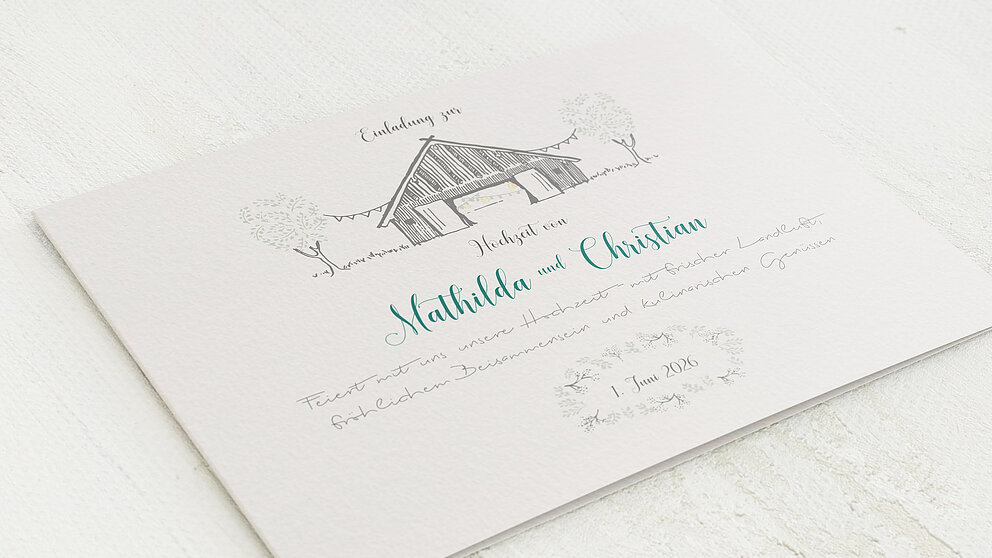 Einladung zur
Hochzeit von
Mathilda und Christian
Feiert mit uns unsere Hochzeit - mit frischer Landluft,
fröhlichem Beisammensein und kulinarischen Genüssen
1. Juni 2026